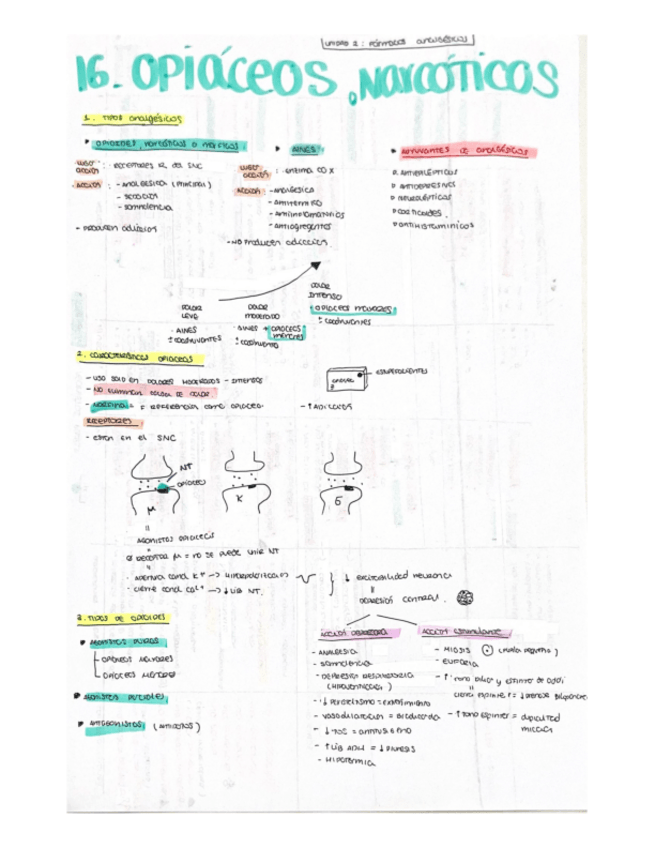 UNIDAD 2: FÁRMACOS ANALGÉSICOS
16. OPIÁCEOS, NARCÓTICOS
1. TIPOS ANALGÉSICOS
OPIOIDES, NARCÓTICOS O
LUGAR ACCIÓN: receptores del SNC
ACCIÓN: - ANALGÉSICA (PRINCIPAL)
- SEDACIÓN
- SOMNOLENCIA
- PRODUCEN ADICCIÓN
AINES
LUGAR ACCIÓN: enzima COX
ACCIÓN: - ANALGÉSICA
- ANTITÉRMICO
- ANTIINFLAMATORIOS
- ANTIAGREGANTES
- NO PRODUCEN ADICCIÓN
ADYUVANTES DE ANALGÉSICOS
ANTIEPILÉPTICOS
ANTIDEPRESIVOS
NEUROLÉPTICOS
CORTICOIDES
ANTIHISTAMÍNICOS
DOLOR LEVE
· AINES
± COADYUVANTES
DOLOR MODERADO
· AINES + OPIÁCEOS MENORES
± COADYUVANTES
DOLOR INTENSO
OPIÁCEOS MAYORES
± COADYUVANTES
2. CARACTERÍSTICAS OPIÁCEOS
- USO SOLO EN DOLORES MODERADOS - INTENSOS
- NO ELIMINAN CAUSA DE DOLOR
- MORFINA = REFERENCIA COMO OPIÁCEO
ESTUPEFACIENTES
- ↑ ADICCIÓN
RECEPTORES
- ESTÁN EN EL SNC
NT
OPIÁCEO
μ
K
δ
AGONISTAS OPIÁCEOS
RECEPTOR μ = NO SE PUEDE UNIR NT
- APERTURA CANAL K⁺ → HIPERPOLARIZACIÓN
- CIERRE CANAL Ca²⁺ → ↓ LIB NT.
↓ EXCITABILIDAD NEURONAL
DEPRESIÓN CENTRAL
3. TIPOS DE OPIOIDES
AGONISTAS PUROS
OPIÁCEOS MAYORES
OPIÁCEOS MENORES
AGONISTAS PARCIALES
ANTAGONISTAS (ANTÍDOTOS)
ACCIÓN DEPRESORA
- ANALGESIA
- SOMNOLENCIA
- DEPRESIÓN RESPIRATORIA (HIPOVENTILACIÓN)
- ↓ PERISTALTISMO = ESTREÑIMIENTO
- VASODILATACIÓN = BRADICARDIA
- ↓ TOS = ANTITUSÍGENO
- ↑ LIB ADH = ↓ DIURESIS
- HIPOTERMIA
ACCIÓN ESTIMULANTE
- MIOSIS (PUPILA PEQUEÑA)
- EUFORIA
- ↑ TONO BILIAR Y ESFÍNTER DE ODDI
- ↑ TONO ESFÍNTER = DIFICULTAD MICCIÓN